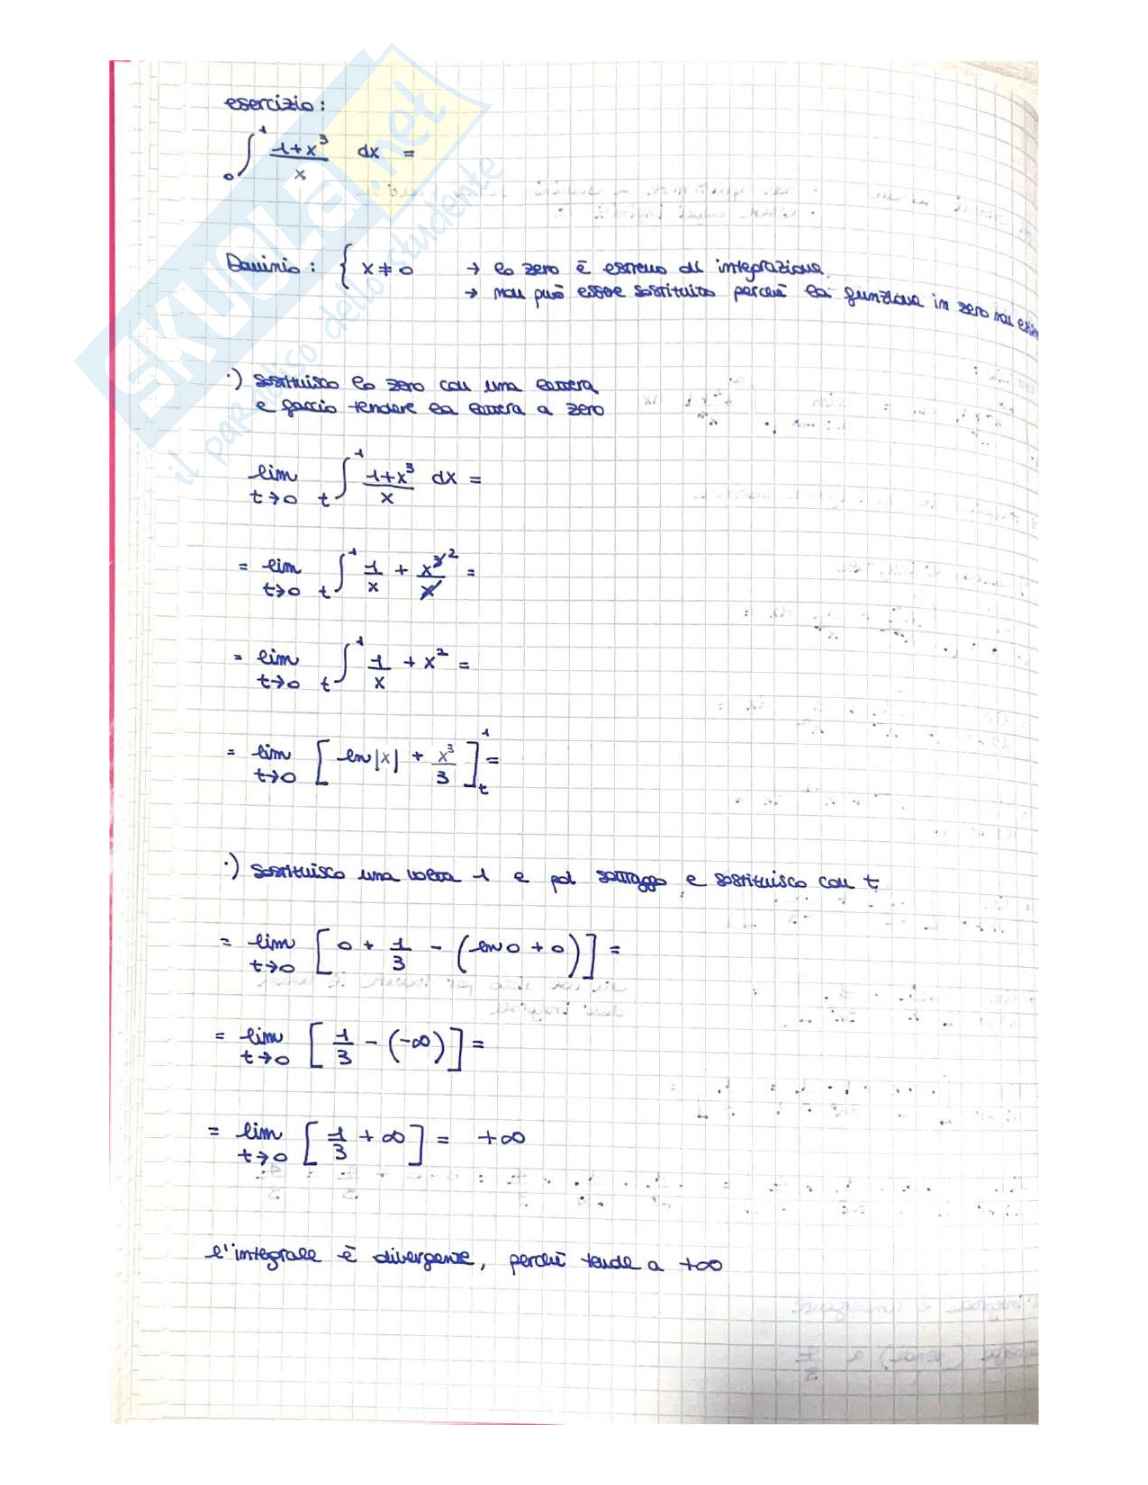 esercizio:
∫₀¹ (1+x³)/x dx =
Dominio: { x≠0 → lo zero è estremo di integrazione
→ non può essere sostituito perché la funzione in zero non
·) sostituisco lo zero con una lettera
e faccio tendere la lettera a zero
lim t→0 ∫ₜ¹ (1+x³)/x dx =
= lim t→0 ∫ₜ¹ 1/x + x³/x =
= lim t→0 ∫ₜ¹ 1/x + x² =
= lim t→0 [ ln|x| + x³/3 ]ₜ¹ =
·) sostituisco una volta 1 e poi sottraggo e sostituisco con t
= lim t→0 [ 0 + 1/3 - (ln0 + 0) ] =
= lim t→0 [ 1/3 - (-∞) ] =
= lim t→0 [ 1/3 + ∞ ] = +∞
l'integrale è divergente, perché tende a +∞
SKUOLA.net
il paradiso dello studente